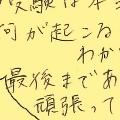 験は本当
何が起こる
わか
最後まであ
頑張って